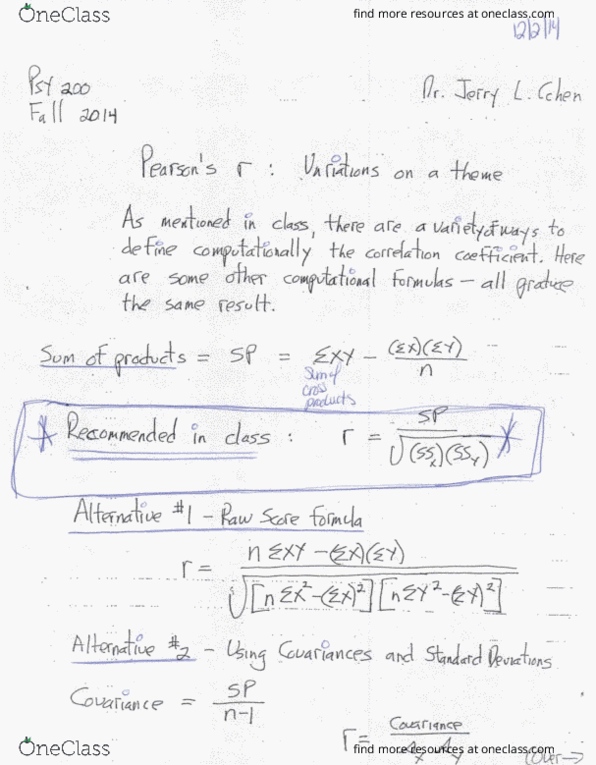 OneClass
find more resources at oneclass.com
12/2/14
Psy 200
Dr. Jerry L. Cohen
Fall 2014
Pearson's r : Variations on a theme
As mentioned in class, there are a variety of ways to
define computationally the correlation coefficient. Here
are some other computational formulas — all produce
the same result.
Sum of products = SP = ΣXY - (ΣX)(ΣY) / n
Sum of
cross
products
* Recommended in class : r = SP / √(SSx)(SSy) *
Alternative #1 - Raw Score formula
r = n ΣXY - (ΣX)(ΣY) / √[n ΣX² - (ΣX)²][n ΣY² - (ΣY)²]
Alternative #2 - Using Covariances and Standard Deviations
Covariance = SP / n-1
r = Covariance
OneClass
find more resources at oneclass.com
(Over →)